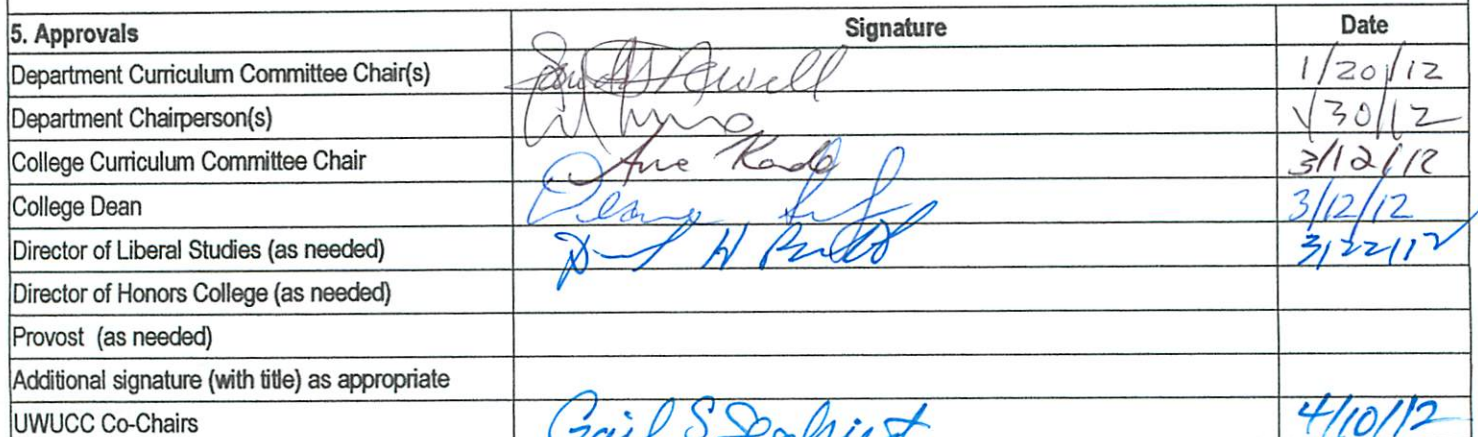 5. Approvals Signature Date
Department Curriculum Committee Chair(s) 1/20/12
Department Chairperson(s) 1/30/12
College Curriculum Committee Chair 3/12/12
College Dean 3/12/12
Director of Liberal Studies (as needed) 3/22/12
Director of Honors College (as needed)
Provost (as needed)
Additional signature (with title) as appropriate
UWUCC Co-Chairs Gail S 4/10/12